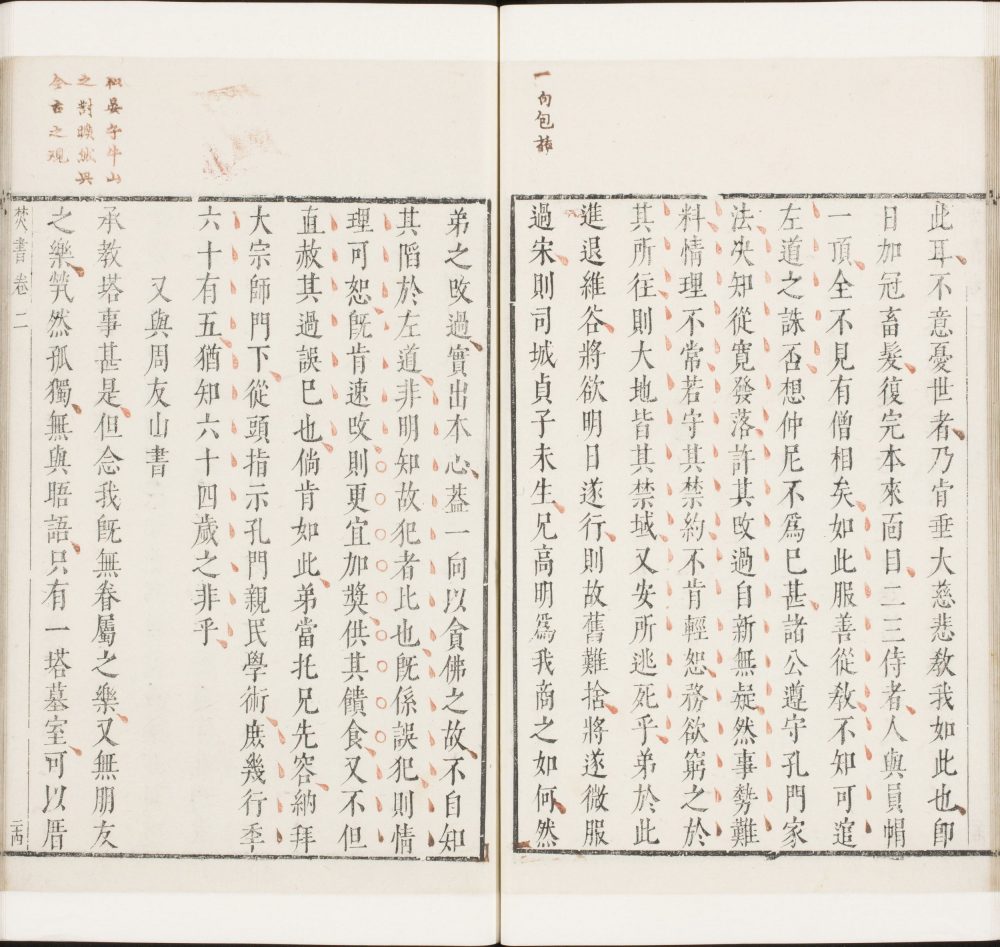 一向包裱
此耳不意憂世者乃肯垂大慈悲教我如此也卽
日加冠畜髮復完本來面目二三侍者人與員帽
一頂全不見有僧相矣如此服善從教不知可逭
左道之誅否想仲尼不爲已甚諸公遵守孔門家
法决知從寬發落許其攺過自新無疑然事勢難
料情理不常若守其禁約不肯輕恕務欲窮之於
其所往則大地皆其禁域又安所逃死乎弟於此
進退維谷將欲明日遂行則故舊難捨將遂微服
過宋則司城貞子未生兄高明爲我商之如何然
弟之攺過實出本心葢一向以貪佛之故不自知
其䧟於左道非明知故犯者比也旣係誤犯則情
理可恕旣肯速攺則更宜加奬供其饋食又不但
直赦其過誤已也倘肯如此弟當托兄先容納拜
大宗師門下從頭指示孔門親民學術庶幾行季
六十有五猶知六十四歲之非乎
又與周友山書
承教塔事甚是但念我旣無眷屬之樂又無朋友
之樂煢然孤獨無與晤語只有一塔墓室可以厝
焚書 卷二
似晏子牛山
之對曠然具
今古之观